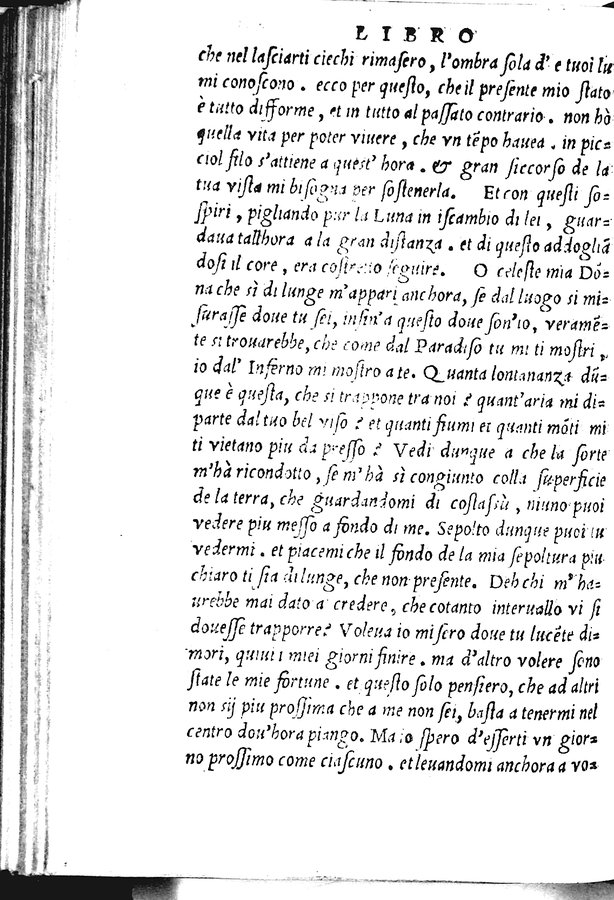 LIBRO
che nel laſciarti ciechi rimaſero, l'ombra ſola d' e tuoi lu
mi conoſcono. ecco per queſto, che il preſente mio ſtato
è tutto difforme, et in tutto al paſſato contrario. non hò
quella vita per poter viuere, che vn tẽpo hauea. in pic=
ciol filo s'attiene a queſt' hora. & gran ſiccorſo de la
tua viſta mi biſogna per ſoſtenerla. Et con queſti ſo=
ſpiri, pigliando pur la Luna in iſcambio di lei, guar=
daua tallhora a la gran diſtanza. et di queſto addogliã
doſi il core, era coſtretto ſeguire. O celeſte mia Dõ=
na che sì di lunge m'appari anchora, ſe dal luogo ſi mi=
ſuraſſe doue tu ſei, inſin'a queſto doue ſon'io, veramẽ=
te ſi trouarebbe, che come dal Paradiſo tu mi ti moſtri,
io dal' Inferno mi moſtro a te. Quanta lontananza dũ=
que è queſta, che ſi trappone tra noi? quant'aria mi di=
parte dal tuo bel viſo? et quanti fiumi et quanti mõti mi
ti vietano piu da preſſo? Vedi dunque a che la ſorte
m'hà ricondotto, ſe m'hà sì congiunto colla ſuperficie
de la terra, che guardandomi di coſtaſsù, niuno puoi
vedere piu meſſo a fondo di me. Sepolto dunque puoi tu
vedermi. et piacemi che il fondo de la mia ſepoltura piu
chiaro ti ſia di lunge, che non preſente. Deh chi m'ha=
urebbe mai dato a credere, che cotanto interuallo vi ſi
doueſſe trapporre? Voleua io miſero doue tu lucẽte di=
mori, quiui i miei giorni finire. ma d'altro volere ſono
ſtate le mie fortune. et queſto ſolo penſiero, che ad altri
non ſij piu proſſima che a me non ſei, baſta a tenermi nel
centro dou'hora piango. Ma io ſpero d'eſſerti vn gior=
no proſſimo come ciaſcuno. et leuandomi anchora a vo=